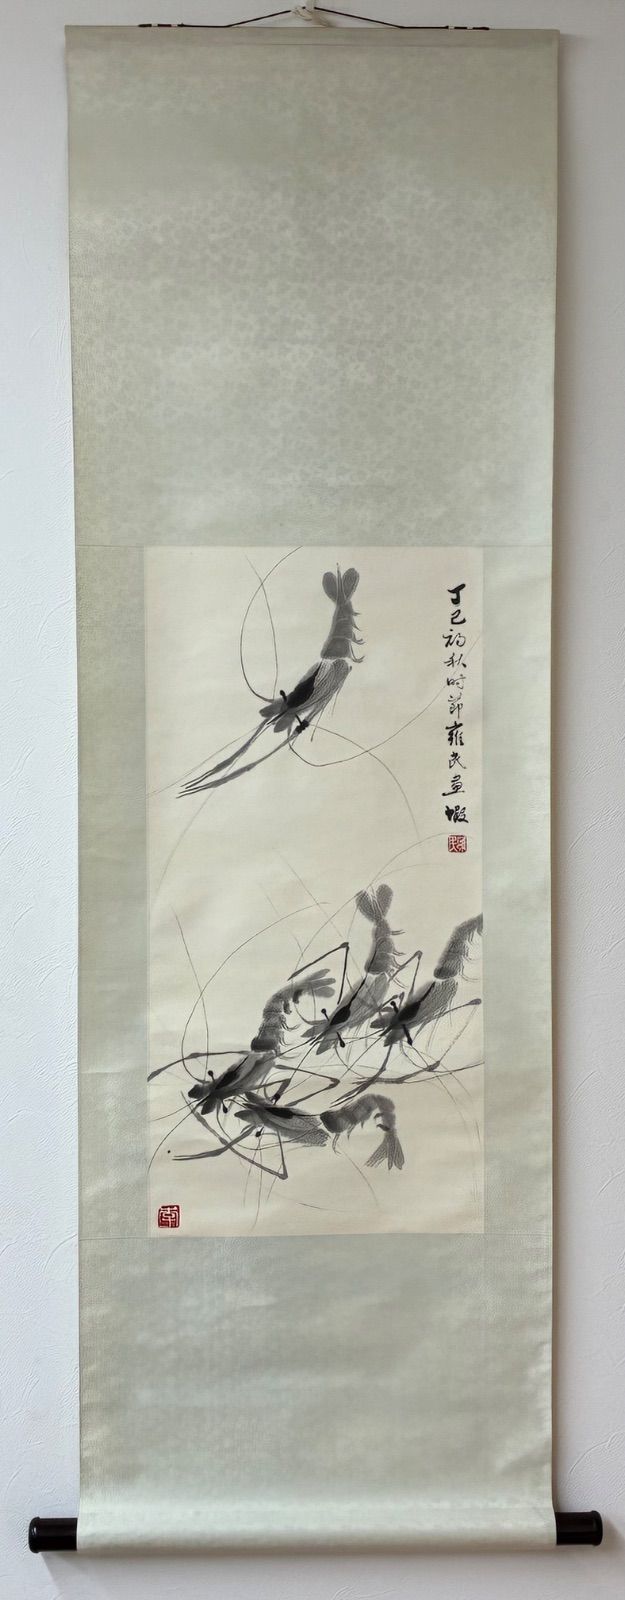 丁巳初秋时節雍民画蝦